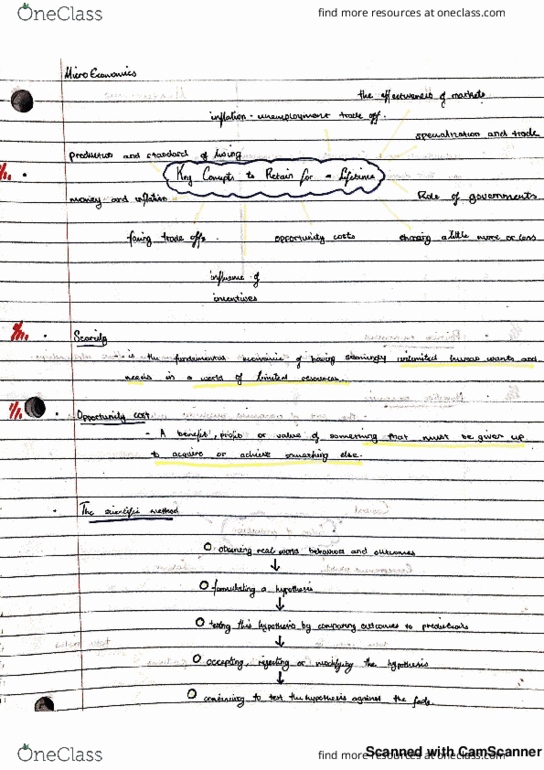 OneClass
find more resources at oneclass.com
Micro Economics
the effectiveness of markets
inflation - unemployment trade off.
specialization and trade
production and standard of living
Key Concepts to Retain for a Lifetime
money and inflation
Role of governments
facing trade offs
opportunity costs
choosing a little more or less
influence of
incentives
Scarcity
is the fundamental economic of having seemingly unlimited human wants and
needs in a world of limited resources.
Opportunity cost
- A benefit, profit or value of something that must be given up
to acquire or achieve something else.
The scientific method
observing real world behaviour and outcomes
formulating a hypothesis
testing this hypothesis by comparing outcomes to predictions
accepting, rejecting or modifying the hypothesis
continuing to test the hypothesis against the facts.
OneClass
find more resources at oneclass.com
Scanned with CamScanner